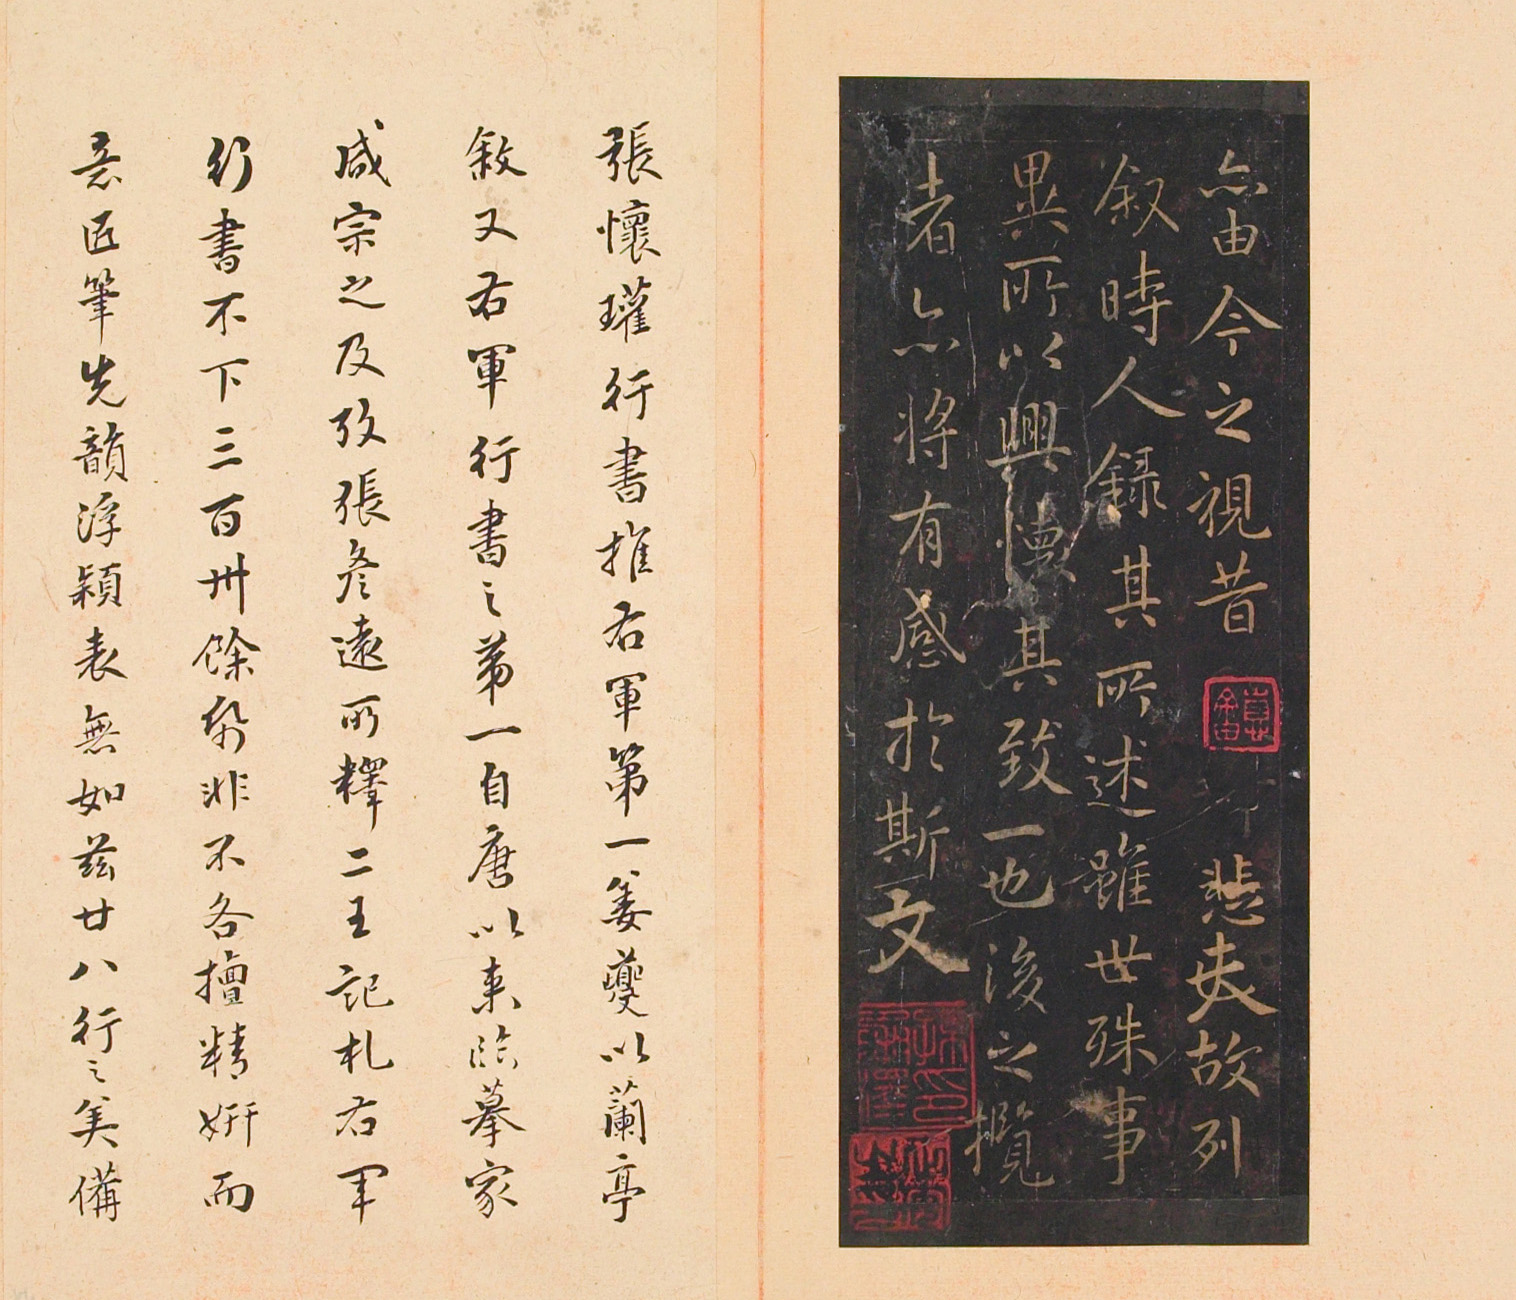 亦由今之視昔 悲夫故列
叙時人錄其所述雖世殊事
異所以興懷其致一也後之攬
者亦將有感於斯文
張懷瓘行書推右軍第一姜夔以蘭亭
敘又右軍行書之第一自唐以来臨摹家
咸宗之及攷張彥遠所釋二王記札右軍
行書不下三百卅餘帋非不各擅精妍而
意匠筆先韻浮穎表無如茲廿八行之美備